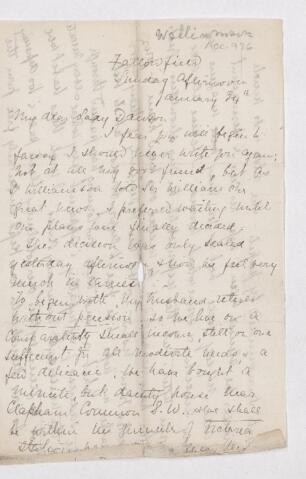 Williamson
Fallowfield
Sunday Afternoon
January
My dear Lady Dawson
I fear you will begin to
fancy I should never write you again;
not at all my good friend, but as
Williamson told Sir William our
great news, I preferred waiting until
our plans were finally decided
The decision was only sealed
yesterday afternoon, & now we feel very
much in earnest.
To begin with, my husband retires
without pension so we live on a
Comparatively small income, still one
sufficient for all moderate needs, & a
few delicacies. We have bought a
minute but dainty house near
Clapham Common S.W. We shall
be within ten minutes of Victoria